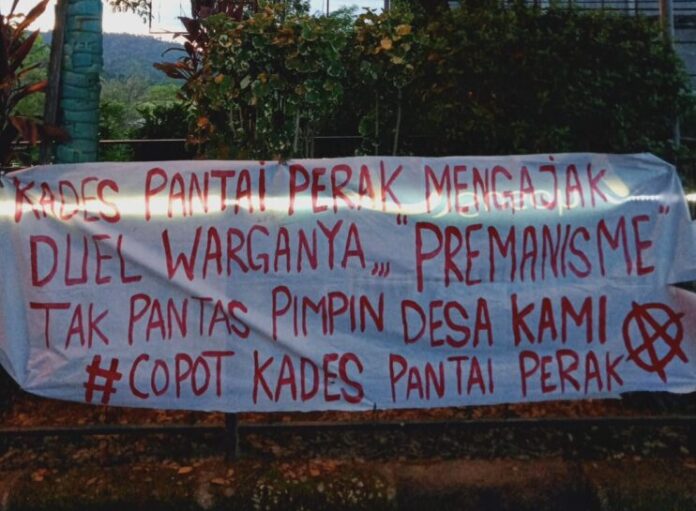 KADES PANTAI PERAK MENGAJAK
DUEL WARGANYA,,, "PREMANISME"
TAK PANTAS PIMPIN DESA KAMI
#COPOT KADES PANTAI PERAK